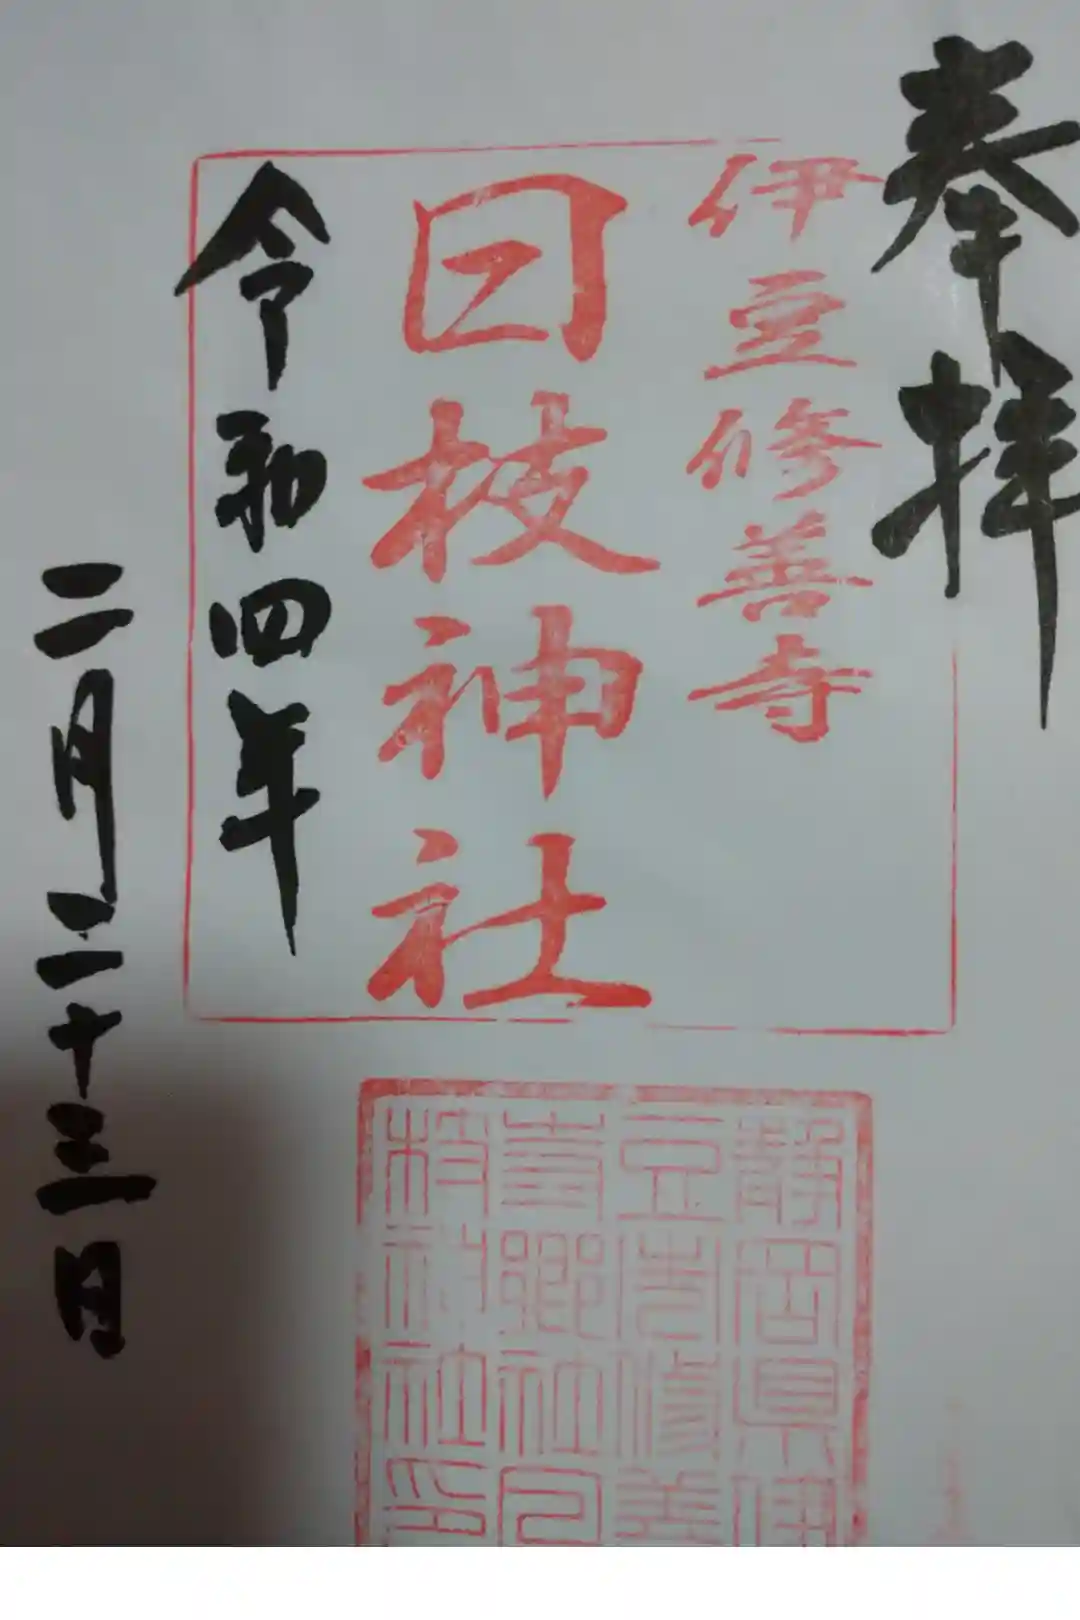 奉拝
伊豆修善寺
日枝神社
令和四年
二月二十三日
静岡県伊
豆市修善
寺郷社日
枝神社印